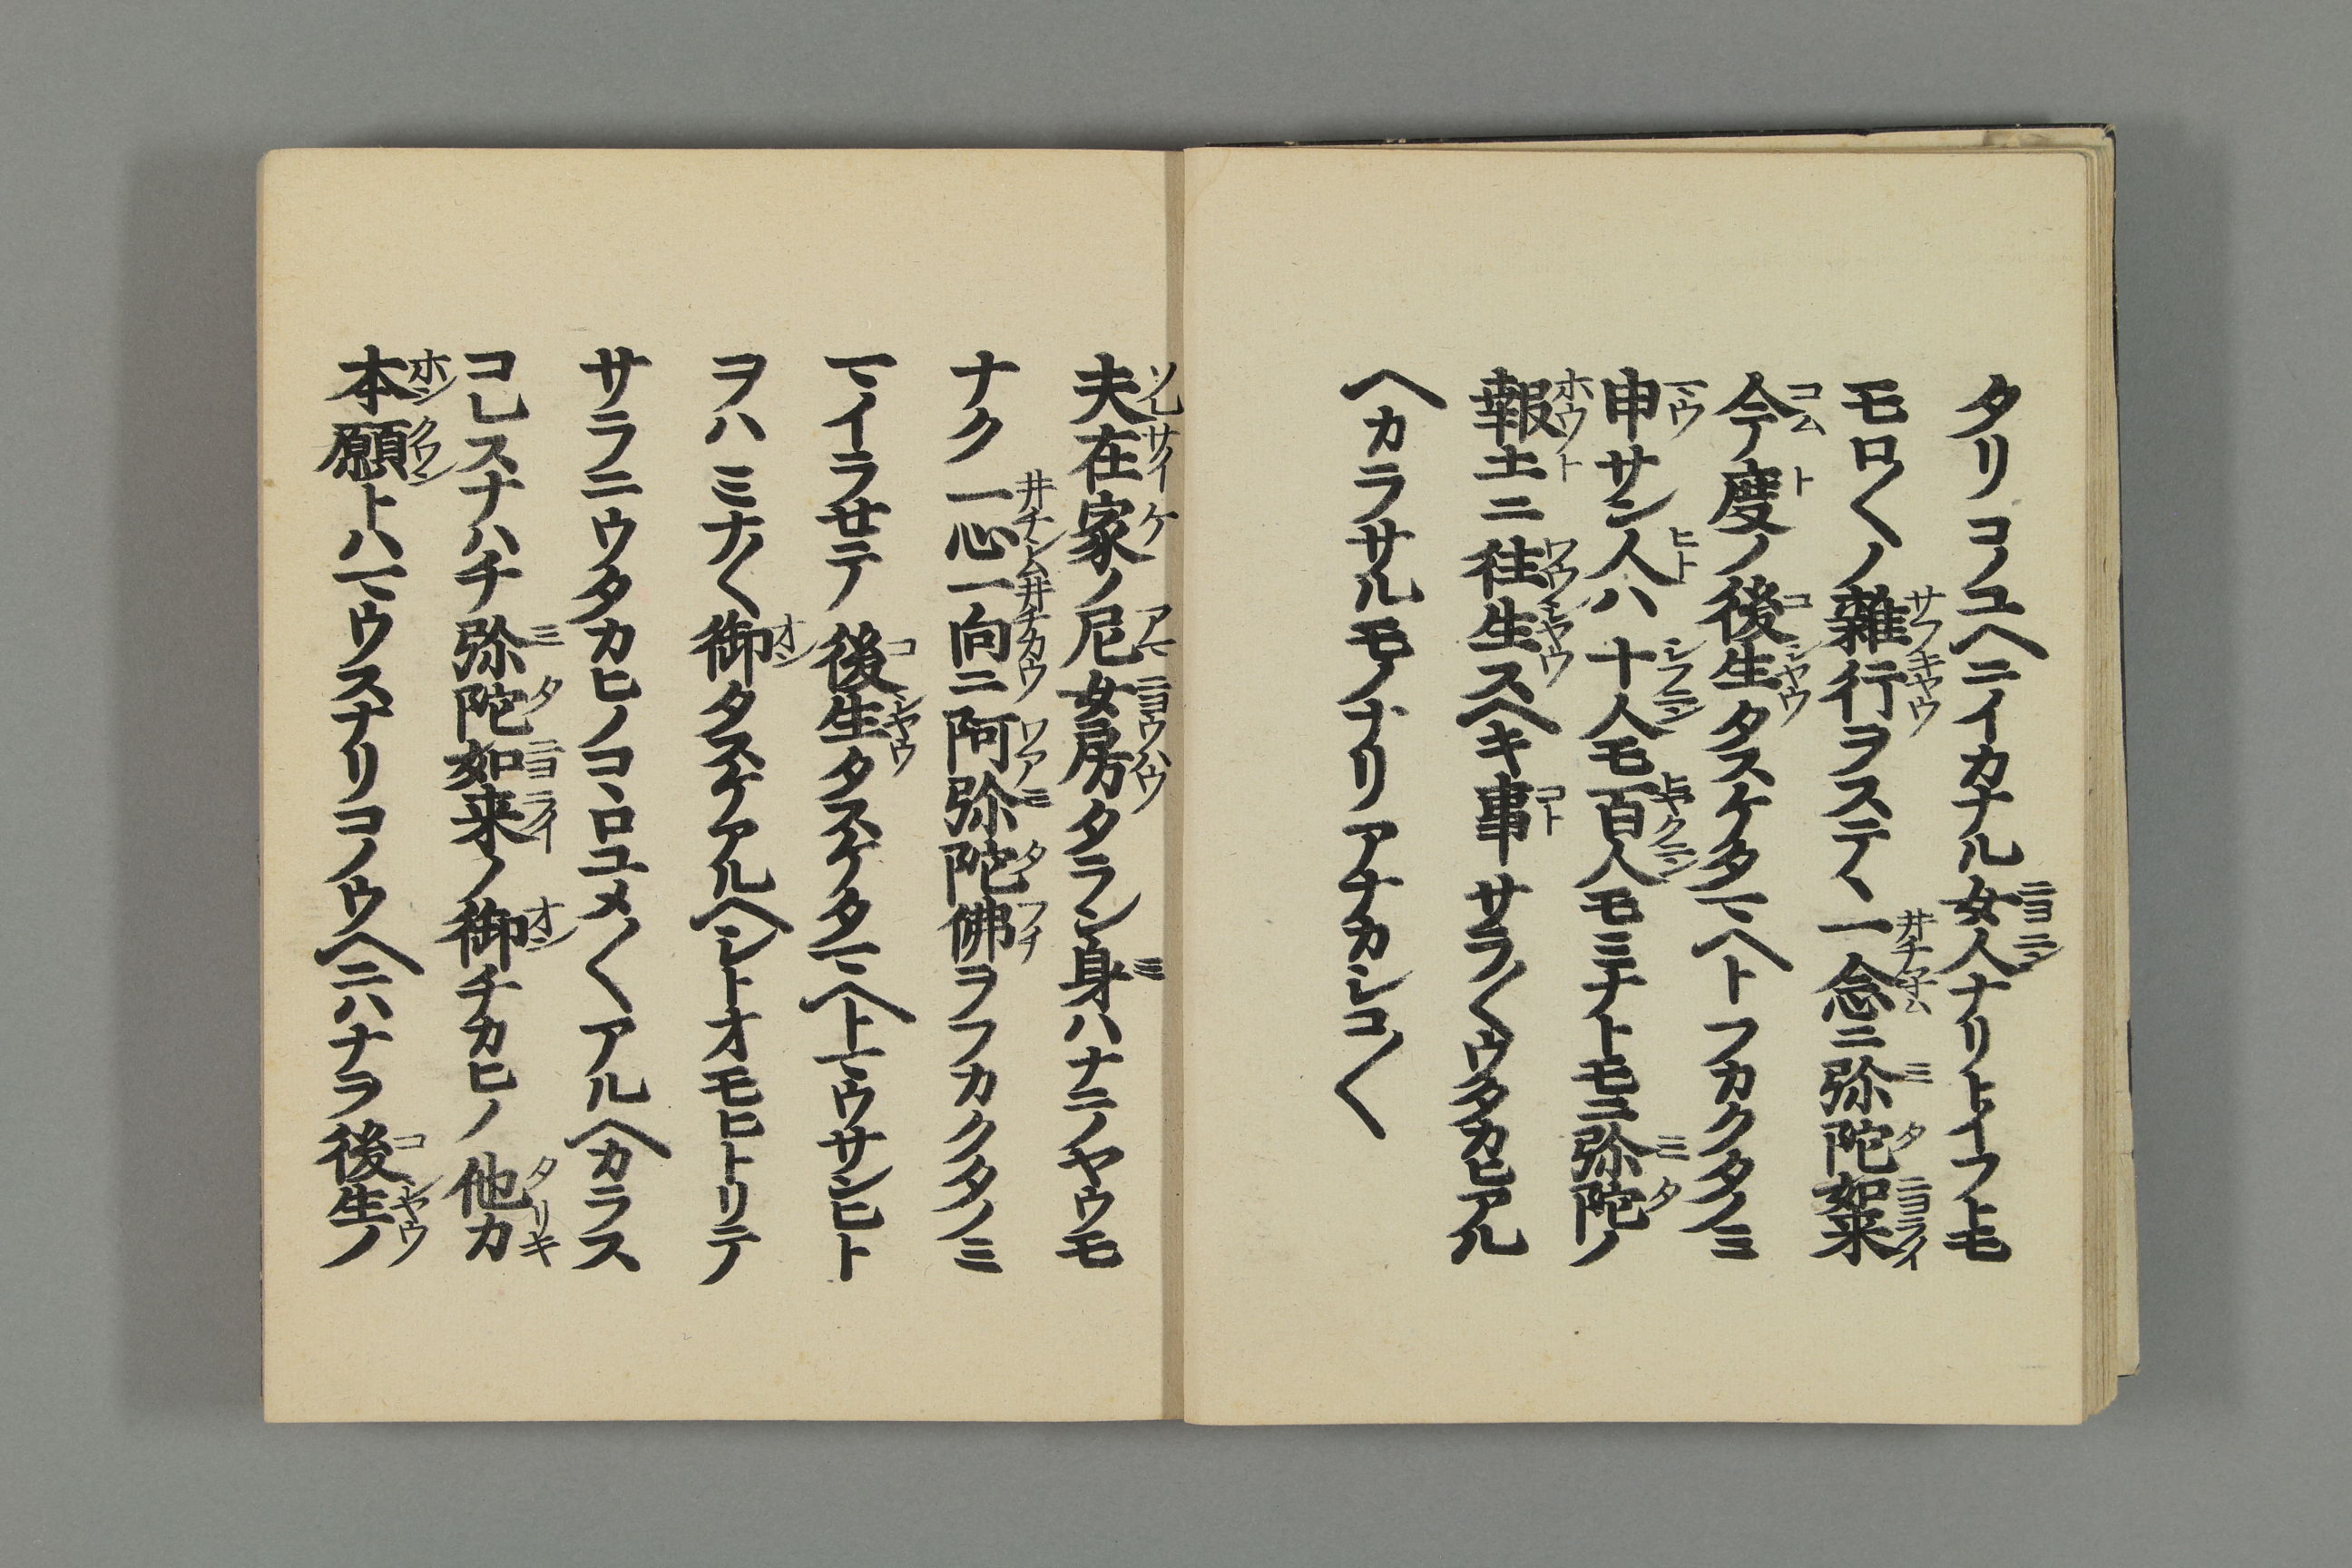 タリコノユヘニイカナル女人ナリトイフトモ
モロ〳〵ノ雜行ヲステヽ一念ニ弥陀如来
今度ノ後生タスケタマヘトフカクタノミ
申サン人ハ十人モ百人モミナトモニ弥陀ノ
報土ニ往生スヘキ事サラ〳〵ウタカヒアル
ヘカラサルモノナリアナカシコ〳〵
夫在家ノ尼女房タラン身ハナニノヤウモ
ナク一心一向ニ阿弥陀佛ヲフカクタノミ
マイラセテ後生タスケタマヘトマウサンヒト
ヲハミナ〳〵御タスケアルヘシトオモヒトリテ
サラニウタカヒノコヽロユメ〳〵アルヘカラス
コレスナハチ弥陀如来ノ御チカヒノ他力
本願トハマウスナリコノウヘニハナヲ後生ノ